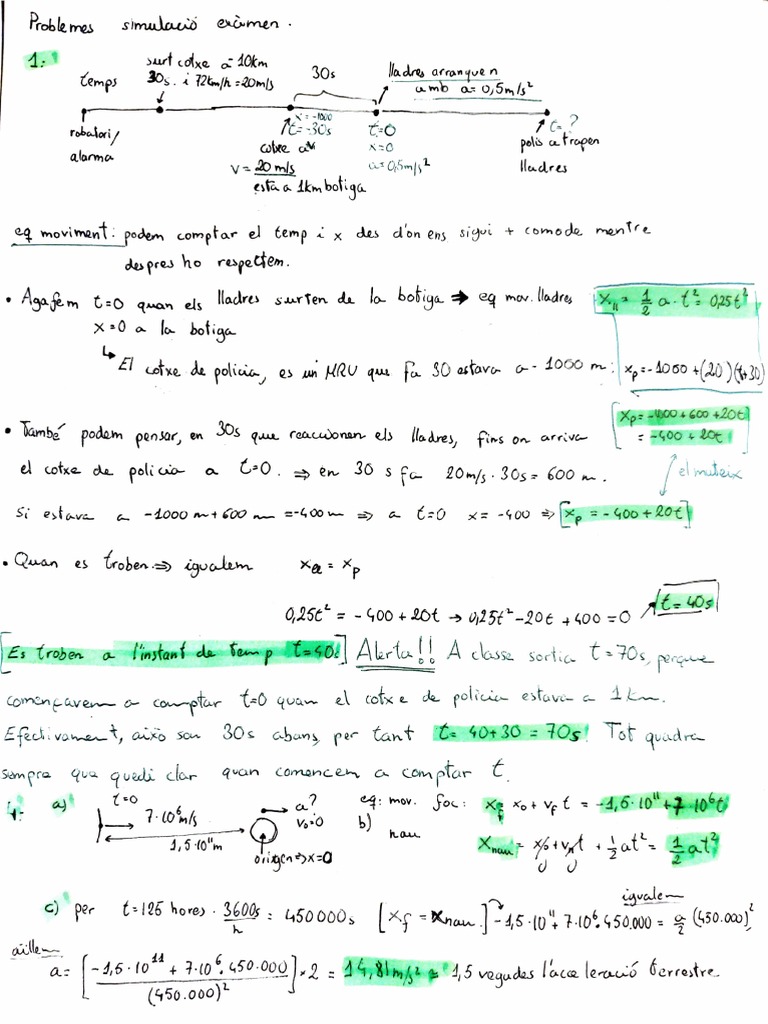 Problemes simulació exàmen.
1.
temps
surt cotxe a 10km
30s. i 72km/h = 20m/s
30s
lladres arranquen
amb a = 0,5m/s²
robatori/
alarma
x = -1000
t = -30s
cotxe a
v = 20 m/s
esta a 1km botiga
t = 0
x = 0
a = 0,5m/s²
t = ?
polis atrapen
lladres
eq moviment: podem comptar el temp i x des d'on ens sigui + comode mentre
despres ho respectem.
• Agafem t=0 quan els lladres surten de la botiga ⇒ eq mov. lladres x_ll = 1/2 a · t² = 0,25t²
x=0 a la botiga
↳ El cotxe de policia, es un MRU que fa 30 estava a -1000 m: x_p = -1000 + (20)(t+30)
[x_p = -1000 + 600 + 20t
= -400 + 20t]
• També podem pensar, en 30s que reaccionen els lladres, fins on arriva
el cotxe de policia a t=0. ⇒ en 30 s fa 20m/s · 30s = 600 m.
el mateix
Si estava a -1000 m + 600 m = -400 m ⇒ a t=0 x = -400 ⇒ [x_p = -400 + 20t]
• Quan es troben ⇒ igualem x_ll = x_p
0,25t² = -400 + 20t → 0,25t² - 20t + 400 = 0 t = 40s
[Es troben a l'instant de temp t=40s] Alerta!! A classe sortia t=70s, perque
començavem a comptar t=0 quan el cotxe de policia estava a 1km.
Efectivament, això son 30s abans, per tant t = 40+30 = 70s! Tot quadra
sempre que quedi clar quan comencem a comptar t.
4. a) t=0
7·10⁶ m/s
1,5·10¹¹ m
a?
v₀=0
origen ⇒ x=0
b) eq. mov. foc: x_f = x₀ + v_f t = -1,5·10¹¹ + 7·10⁶t
nau x_nau = x₀ + v₀t + 1/2 at² = 1/2 at²
igualem
c) per t = 125 hores · 3600s/h = 450000s [x_f = x_nau] → -1,5·10¹¹ + 7·10⁶·450.000 = a/2 (450.000)²
aïllem
a = [-1,5·10¹¹ + 7·10⁶·450.000 / (450.000)²] × 2 = 14,81m/s² = 1,5 vegades l'acceleració terrestre